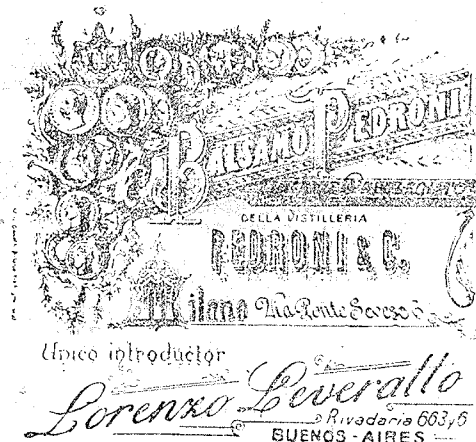 BALSAMO PEDRONI
DELLA DISTILLERIA
PEDRONI & C.
Milano Via Ponte Seveso 6
Unico introductor
Lorenzo Leverallo
Rivadaria 663,6
BUENOS-AIRES